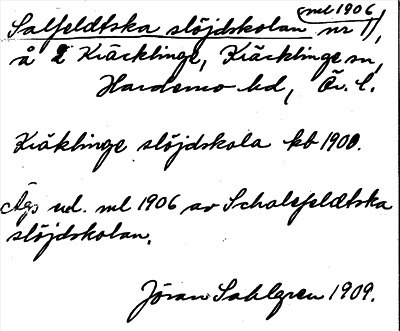 ml 1906
Salfeldtska slöjdskolan nr 11,
å 2 Kräcklinge, Kräcklinge sn,
Hardemo hd, Ör. l.
Kräklinge slöjdskola kb 1900.
Äges ucl. ml 1906 av Schalefeldtska
slöjdskolan.
Jöran Sahlgren 1909.